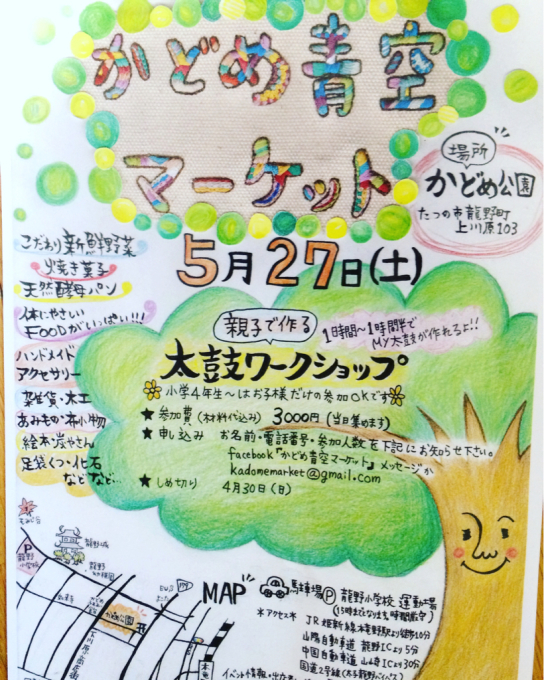 かどめ青空
マーケット
場所
かどめ公園
たつの市龍野町
上川原103
5月27日(土)
こだわり新鮮野菜
焼き菓子
天然酵母パン
体にやさしい
FOODがいっぱい!!!
ハンドメイド
アクセサリー
雑貨・木工
あみもの・布小物
絵本・炭やさん
足袋くつ・化石
などなど…
親子で作る
1日時間~1時間半で
MY太鼓が作れるよ!!
太鼓ワークショップ
小学4年生~はお子様だけの参加OKです
★ 参加費(材料代込み) 3000円(当日集めます)
★ 申し込み お名前・電話番号・参加人数を下記にお知らせ下さい。
facebook『かどめ青空マーケット』メッセージか
kadomemarket@gmail.com
★ しめ切り 4月30日(日)
もみじ谷
龍野城
P
龍野
小学校
龍野
幼稚園
かどめ公園
下川原商店街
179
MAP
駐車場 P 龍野小学校 運動場
(15時までとなります。時間厳守)
*アクセス*
JR姫新線 本竜野駅より徒歩10分
山陽自動車道 龍野ICより5分
中国自動車道 山崎ICより30分
国道2号線(太子龍野バイパス)
イベント情報・出店者